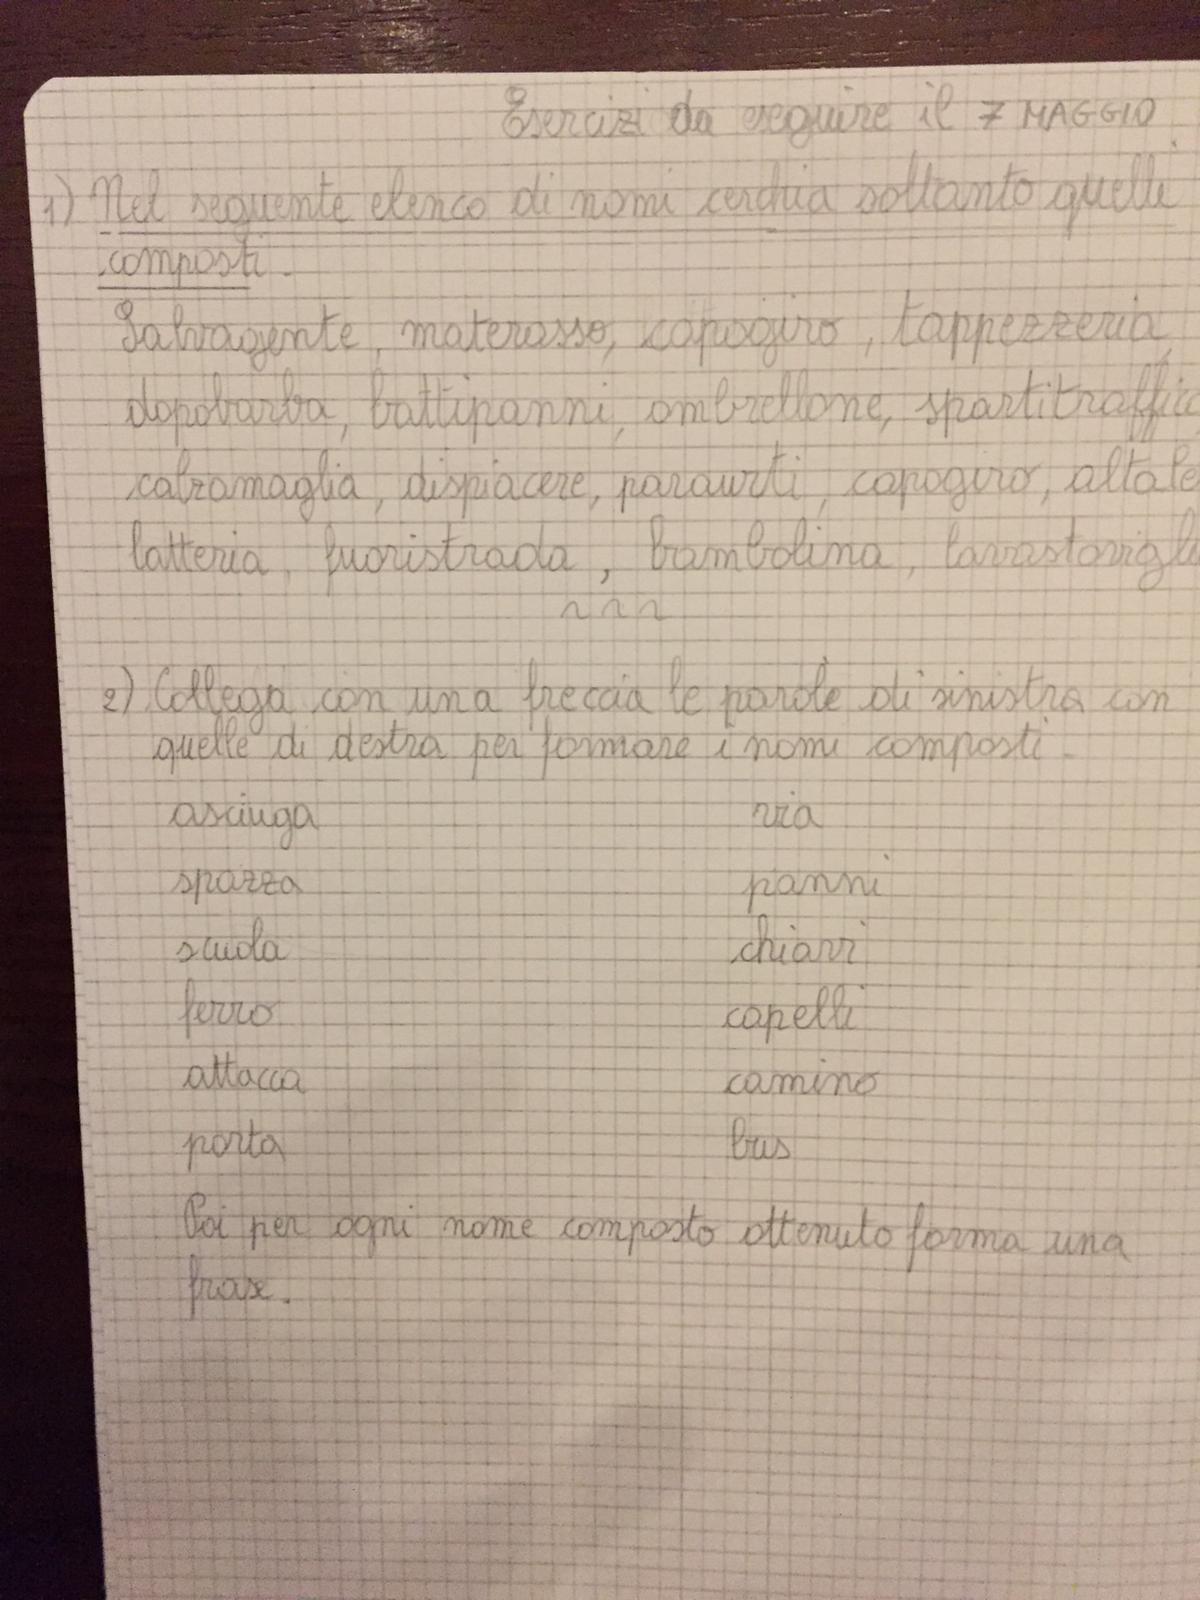 Esercizi da eseguire il 7 MAGGIO
1) Nel seguente elenco di nomi cerchia soltanto quelli
composti.
Salvagente, materasso, capogiro, tappezzeria,
dopobarba, battipanni, ombrellone, spartitraffico
calzamaglia, dispiacere, paraurti, capogiro, altale
latteria, fuoristrada, bambolina, lavastovigli
2) Collega con una freccia le parole di sinistra con
quelle di destra per formare i nomi composti.
asciuga via
spazza panni
scuola chiavi
ferro capelli
attacca camino
porta bus
Poi per ogni nome composto ottenuto forma una
frase.